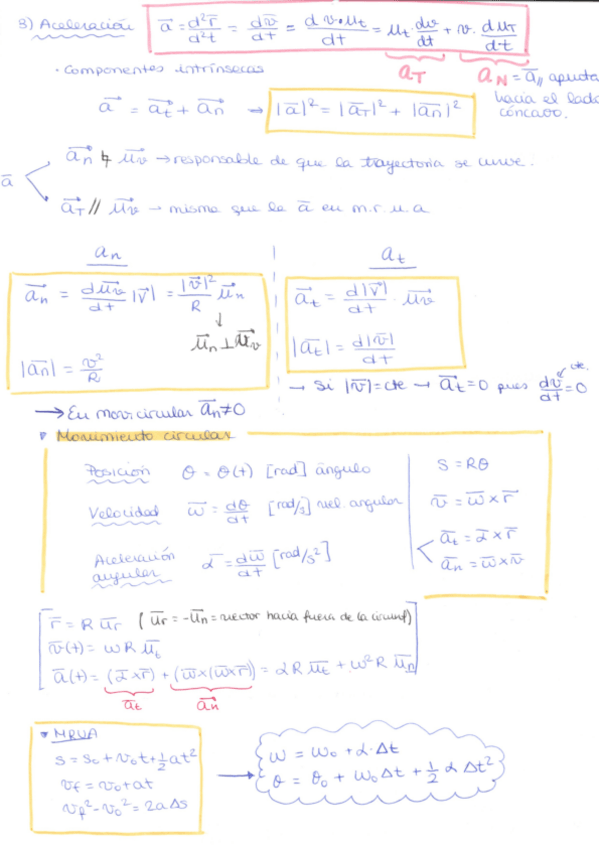 3) Aceleración a⃗ = d²r⃗/d²t = dv⃗/dt = d v·u⃗t/dt = u⃗t dv/dt + v· du⃗T/dt
aT aN = a// apunta
hacia el lado
cóncavo.
· Componentes intrínsecas
a⃗ = a⃗t + a⃗n → |a̅|² = |a̅T|² + |a̅n|²
a̅
a⃗n ↳ u⃗v → responsable de que la trayectoria se curve.
a⃗T // u⃗v → misma que la a̅ en m.r.u.a
an at
a⃗n = du⃗v/dt |v⃗| = |v⃗|²/R u⃗n
u⃗n ⊥ u⃗v
|a⃗n| = v²/R
a⃗t = d|v⃗|/dt · u⃗v
|a⃗t| = d|v̅|/dt
→ Si |v⃗| = cte → a⃗t = 0 pues dv⃗/dt = 0
cte.
→ En mov. circular a⃗n ≠ 0
Movimiento circular
Posición θ = θ(t) [rad] ángulo
Velocidad w̅ = dθ/dt [rad/s] vel. angular
Aceleración angular α̅ = dw̅/dt [rad/s²]
S = Rθ
v̅ = w̅ x r̅
a̅t = α̅ x r̅
a̅n = w̅ x v̅
r̅ = R u̅r ( u̅r = -u̅n = vector hacia fuera de la circunf)
v̅(t) = w R u̅t
a̅(t) = (α̅ x r̅) + (w̅ x (w̅ x r̅)) = αR u̅t + w²R u̅n
a̅t a⃗n
MRUA
S = So + vot + 1/2 at²
vf = vo + at
vf² - vo² = 2aΔs
w = wo + α·Δt
θ = θo + woΔt + 1/2 αΔt²